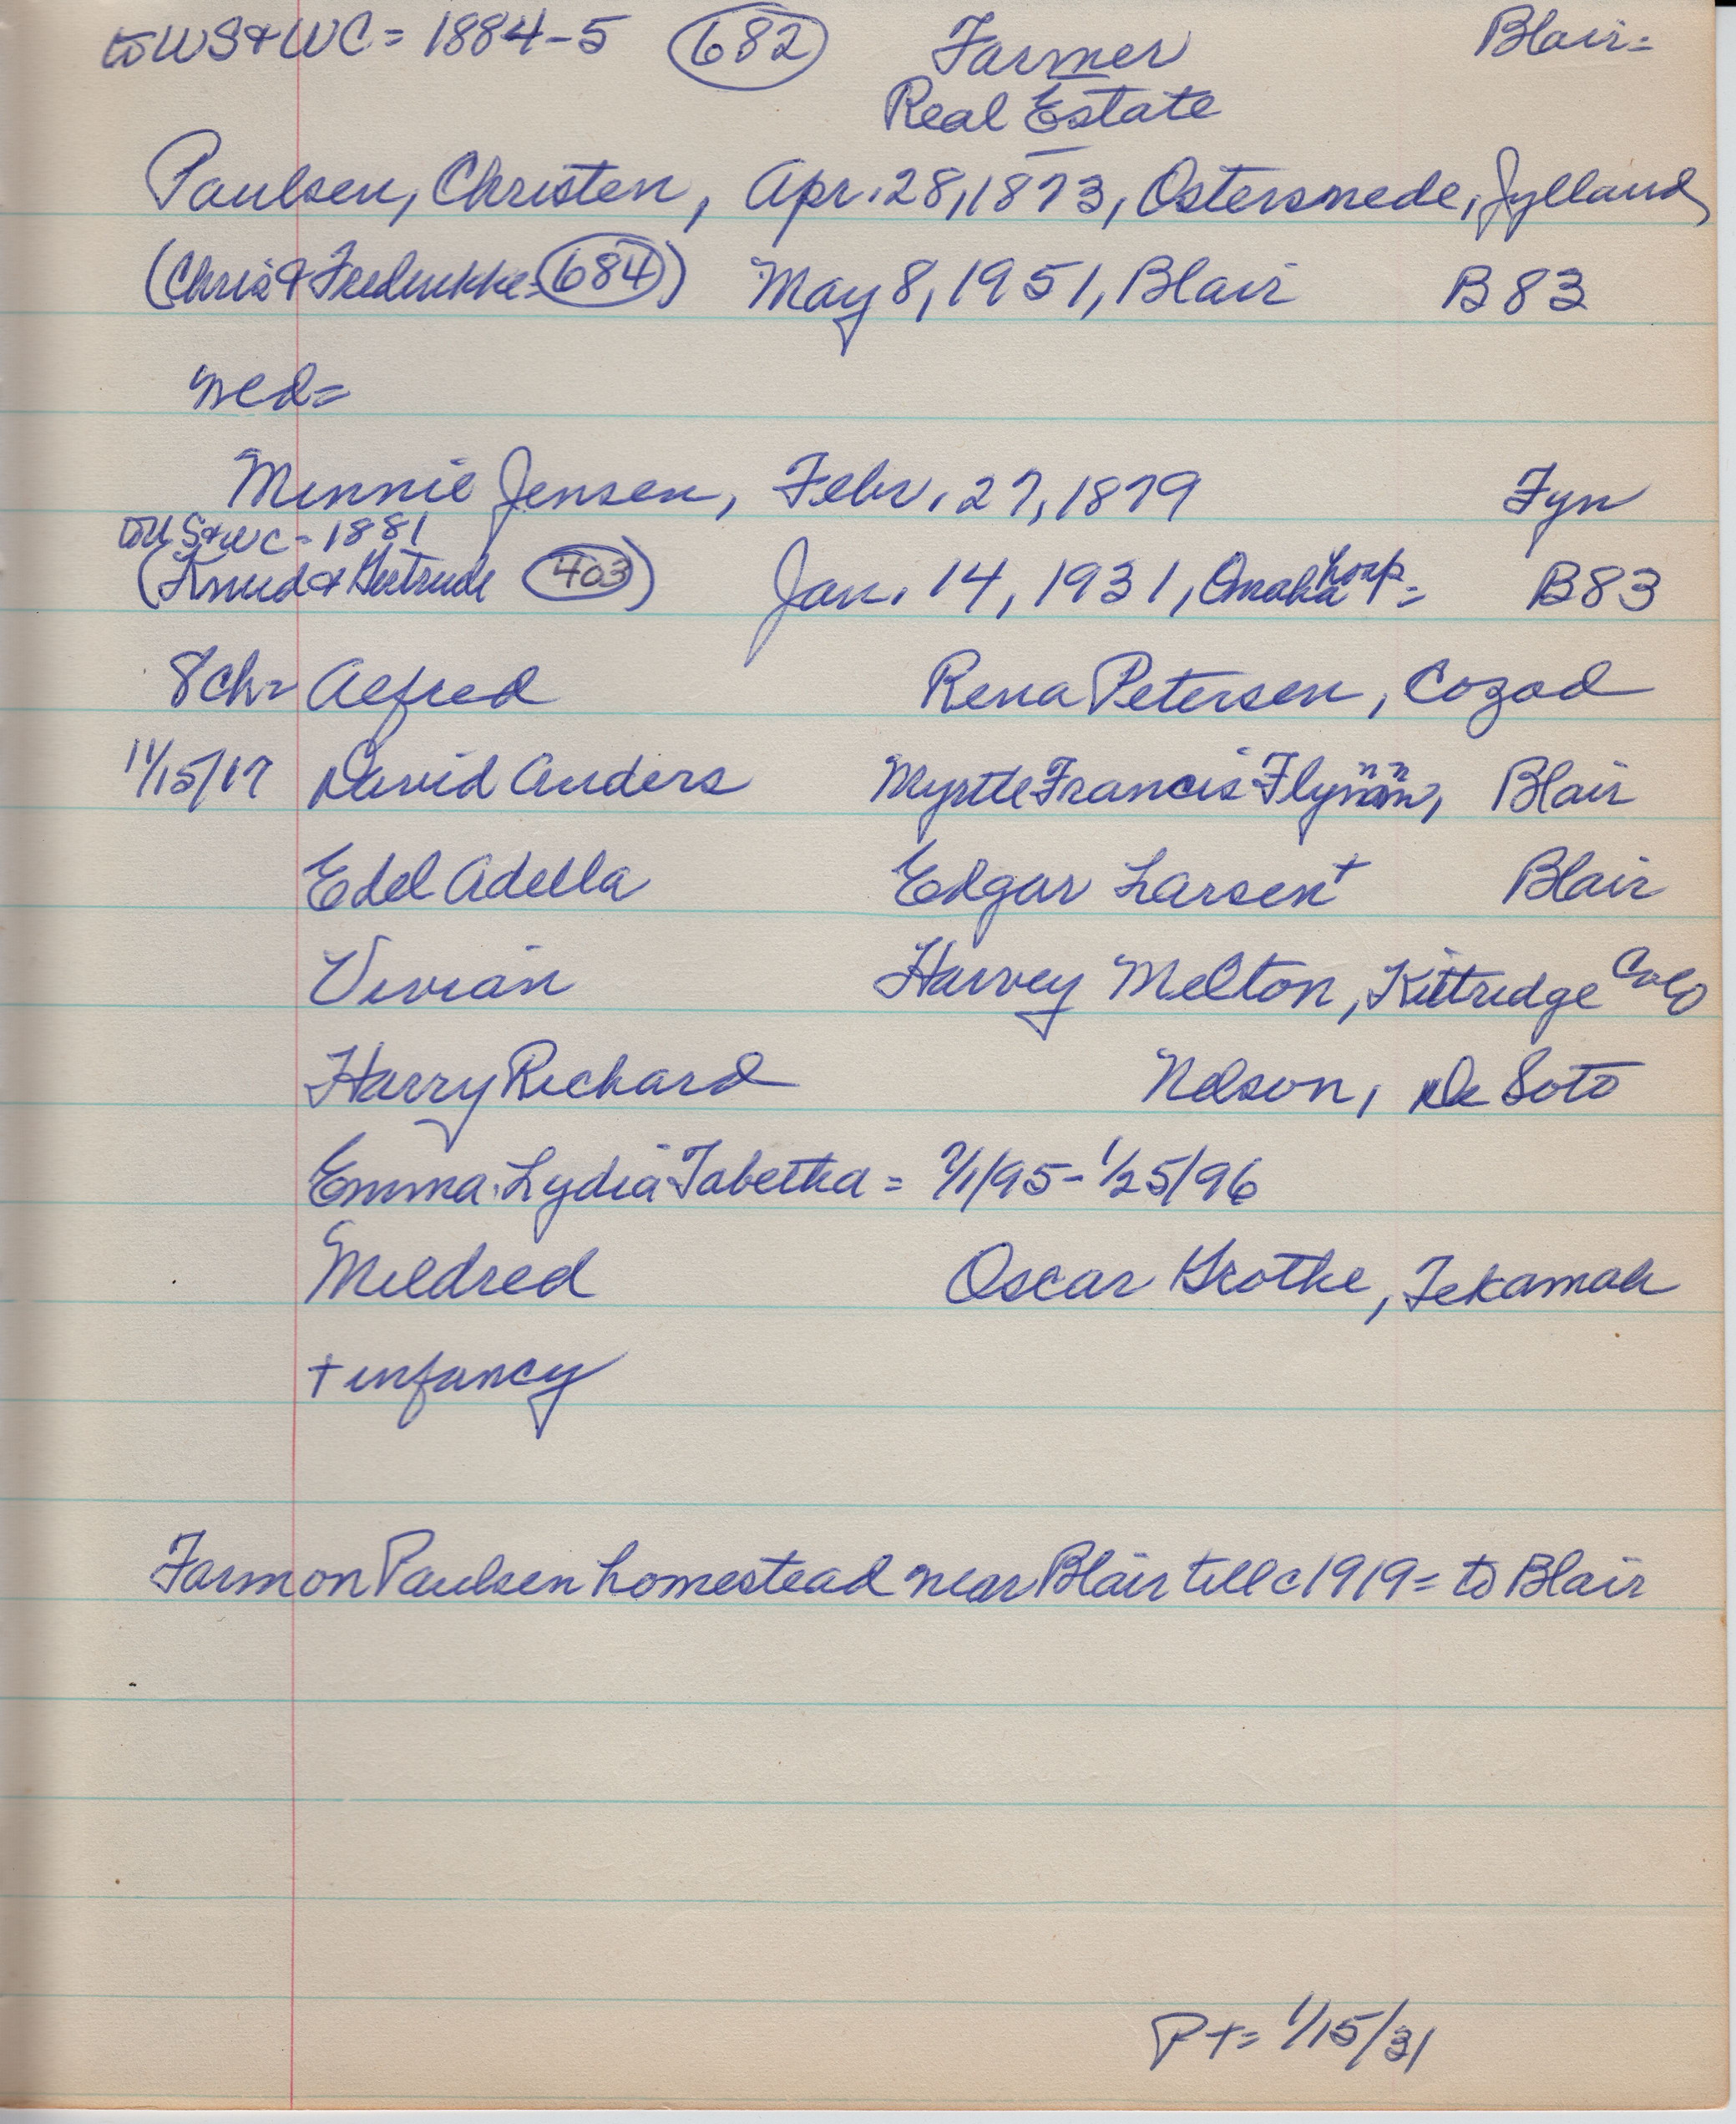 to US & WC = 1884-5 682 Farmer Blair=
Real Estate
Paulsen, Christen, Apr. 28, 1873, Ostersnede, Jylland
(Chris & Fredrikke= 684) May 8, 1951, Blair B83
wed=
Minnie Jensen, Febr. 27, 1879 Fyn
to US & WC - 1881
(Knud & Gertrude 403) Jan. 14, 1931, Omaha hosp= B83
8ch= Alfred Rena Petersen, Cozad
11/15/17 David Anders Myrtle Francis Flynn, Blair
Edel Adella Edgar Larsen+ Blair
Vivian Harvey Melton, Kittredge Colo
Harry Richard Nelson, De Soto
Emma Lydia Tabetha = 7/1/95-1/25/96
Mildred Oscar Grothe, Tekamah
+ infancy
Farm on Paulsen homestead near Blair till c1919= to Blair
PT= 1/15/31